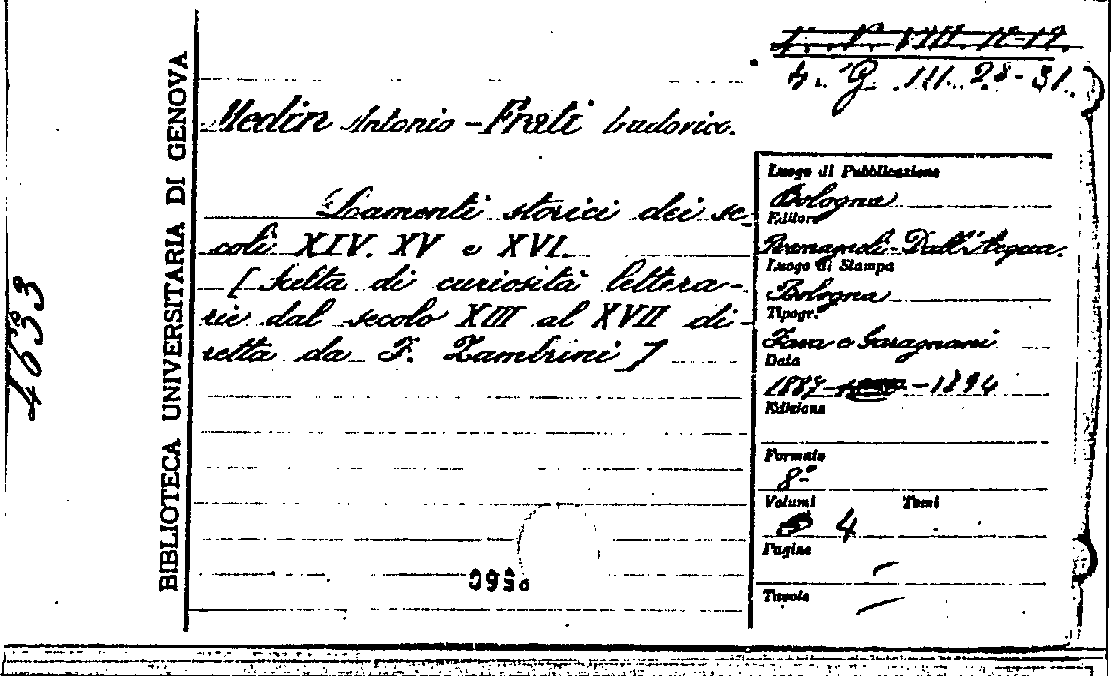 4. G. III. 28-31.
Medin Antonio - Frati Ludovico.
Lamenti storici dei se-
coli XIV. XV e XVI.
[Scelta di curiosità lettera-
rie dal secolo XIII al XVII di-
retta da F. Zambrini]
BIBLIOTECA UNIVERSITARIA DI GENOVA
4633
Luogo di Pubblicazione
Bologna
Editore
Romagnoli-Dall'Acqua.
Luogo di Stampa
Bologna
Tipogr.
Fava e Garagnani
Data
1887 - 1894
Edizione
Formato
8°
Volumi Tomi
4
Pagine
Tavole